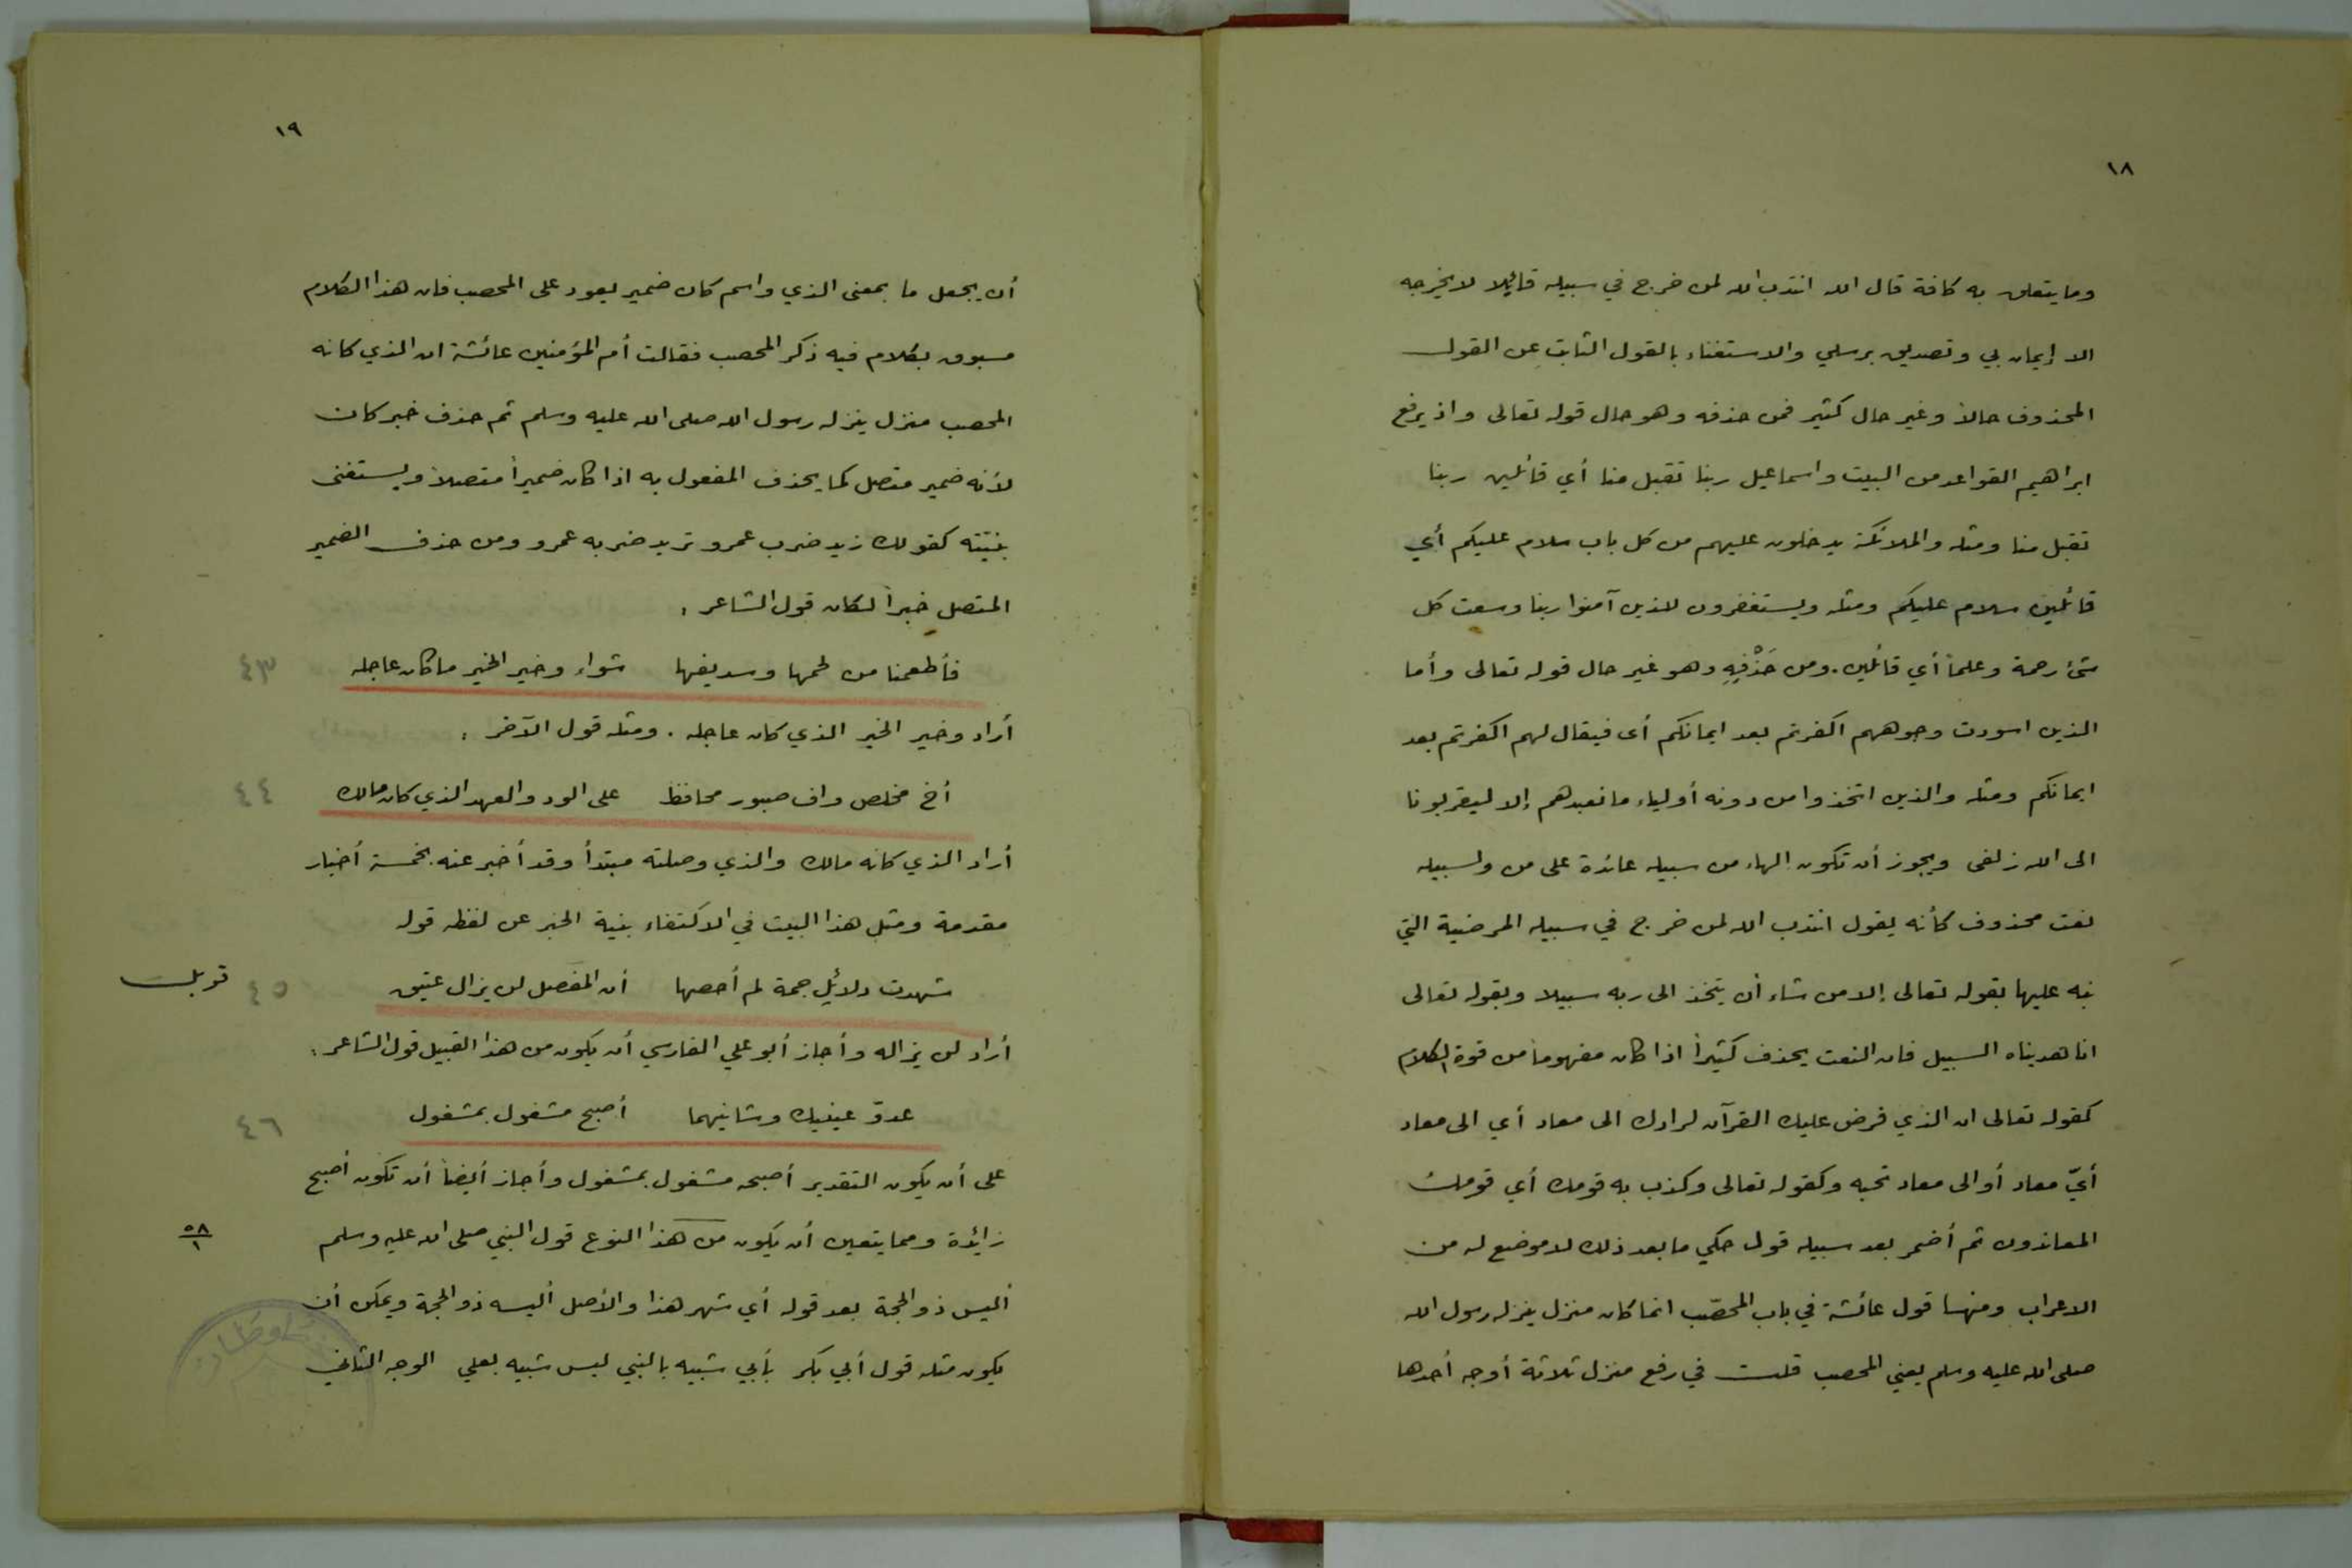 ١٨
وما يتعلق به كافة قال الله انتدب الله لمن خرج في سبيله قائلا لا يخرجه
الا إيمان بي وتصديق برسلي والاستغناء بالقول الثابت عن القول
المحذوف حالاً وغير حال كثير فمن حذفه وهو حال قوله تعالى واذ يرفع
ابراهيم القواعد من البيت واسماعيل ربنا تقبل منا أي قائلين ربنا
تقبل منا ومثله والملائكة يدخلون عليهم من كل باب سلام عليكم أي
قائلين سلام عليكم ومثله ويستغفرون للذين آمنوا ربنا وسعت كل
شئ رحمة وعلماً أي قائلين. ومن حَذْفِهِ وهو غير حال قوله تعالى وأما
الذين اسودت وجوههم اكفرتم بعد ايمانكم أى فيقال لهم اكفرتم بعد
ايمانكم ومثله والذين اتخذوا من دونه أولياء ما نعبدهم إلا ليقربونا
الى الله زلفى ويجوز أن تكون الهاء من سبيله عائدة على من ولسبيله
نعت محذوف كأنه يقول انتدب الله لمن خرج في سبيله المرضية التي
نبه عليها بقوله تعالى إلا من شاء أن يتخذ الى ربه سبيلا وبقوله تعالى
انا هديناه السبيل فان النعت يحذف كثيراً اذا كان مفهوماً من قوة الكلام
كقوله تعالى ان الذي فرض عليك القرآن لرادك الى معاد أي الى معاد
أيّ معاد أو الى معاد تحبه وكقوله تعالى وكذب به قومك أي قومك
المعاندون ثم أضمر بعد سبيله قول حكي ما بعد ذلك لا موضع له من
الاعراب ومنها قول عائشة في باب المحصّب انما كان منزل ينزله رسول الله
صلى الله عليه وسلم يعني المحصب قلت في رفع منزل ثلاثة أوجه أحدها
١٩
أن يجعل ما بمعنى الذي واسم كان ضمير يعود على المحصب فان هذا الكلام
مسبوق بكلام فيه ذكر المحصب فقالت أم المؤمنين عائشة ان الذي كانه
المحصب منزل ينزله رسول الله صلى الله عليه وسلم ثم حذف خبر كان
لأنه ضمير متصل كما يحذف المفعول به اذا كان ضميراً متصلاً ويستغنى
بنيته كقولك زيد ضرب عمرو تريد ضربه عمرو ومن حذف الضمير
المتصل خبراً لكان قول الشاعر :
فأطعمنا من لحمها وسديفها شواء وخير الخير ما كان عاجله ٤٣
أراد وخير الخير الذي كان عاجله . ومثله قول الآخر :
أخ مخلص واف صبور محافظ على الود والعهد الذي كان مالك ٤٤
أراد الذي كانه مالك والذي وصلته مبتدأ وقد أخبر عنه بخمسة أخبار
مقدمة ومثل هذا البيت في الاكتفاء بنية الخبر عن لفظه قوله
شهدت دلائل جمة لم أحصها أن المفصل لن يزال عتيق ٤٥ قوبلت
أراد لن يزاله وأجاز أبو علي الفارسي أن يكون من هذا القبيل قول الشاعر :
عدوّ عينيك وشانيهما أصبح مشغول بمشغول ٤٦
على أن يكون التقدير أصبحه مشغول بمشغول وأجاز أيضاً أن تكون أصبح
زائدة ومما يتعين أن يكون من هذا النوع قول النبي صلى الله عليه وسلم ٥٨/١
أليس ذو الحجة بعد قوله أي شهر هذا والأصل أليسه ذو الحجة ويمكن أن
يكون مثله قول أبي بكر بأبي شبيه بالنبي ليس شبيه بعلي الوجه الثاني